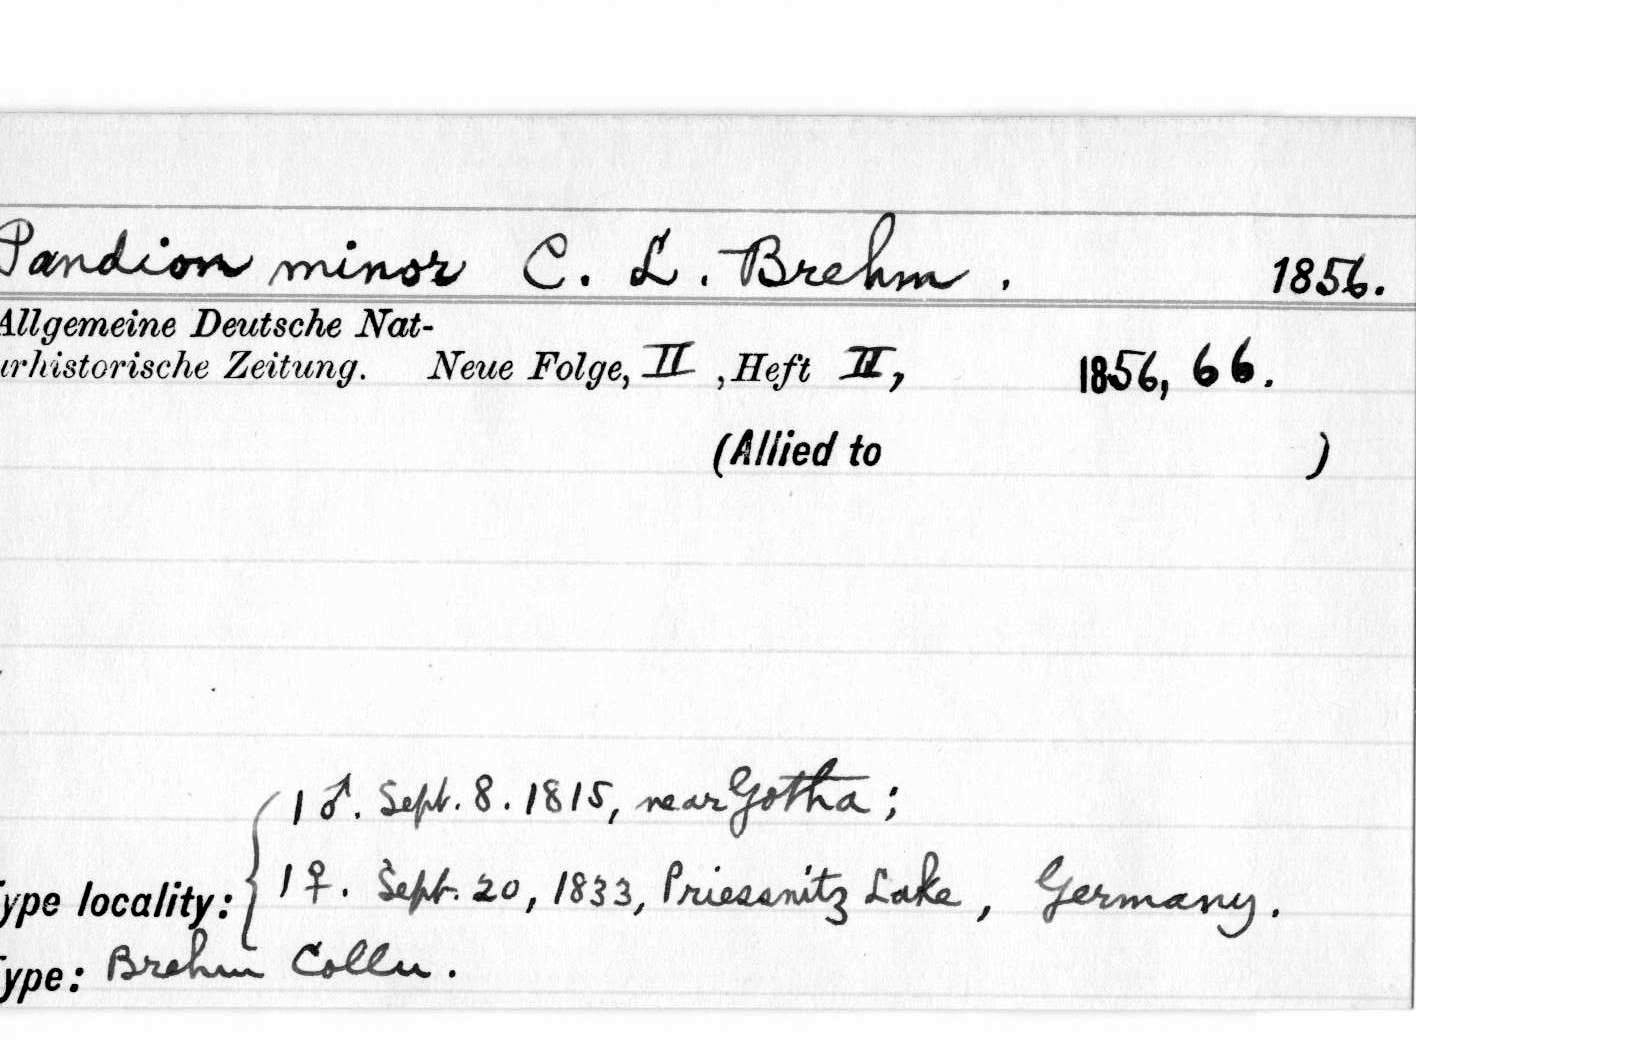 Pandion minor C. L. Brehm. 1856.
Allgemeine Deutsche Nat-
urhistorische Zeitung. Neue Folge, II, Heft II, 1856, 66.
(Allied to )
1 ♂. Sept. 8. 1815, near Gotha;
1 ♀. Sept. 20, 1833, Priessnitz Lake, Germany.
Type locality:
Type: Brehm Colln.